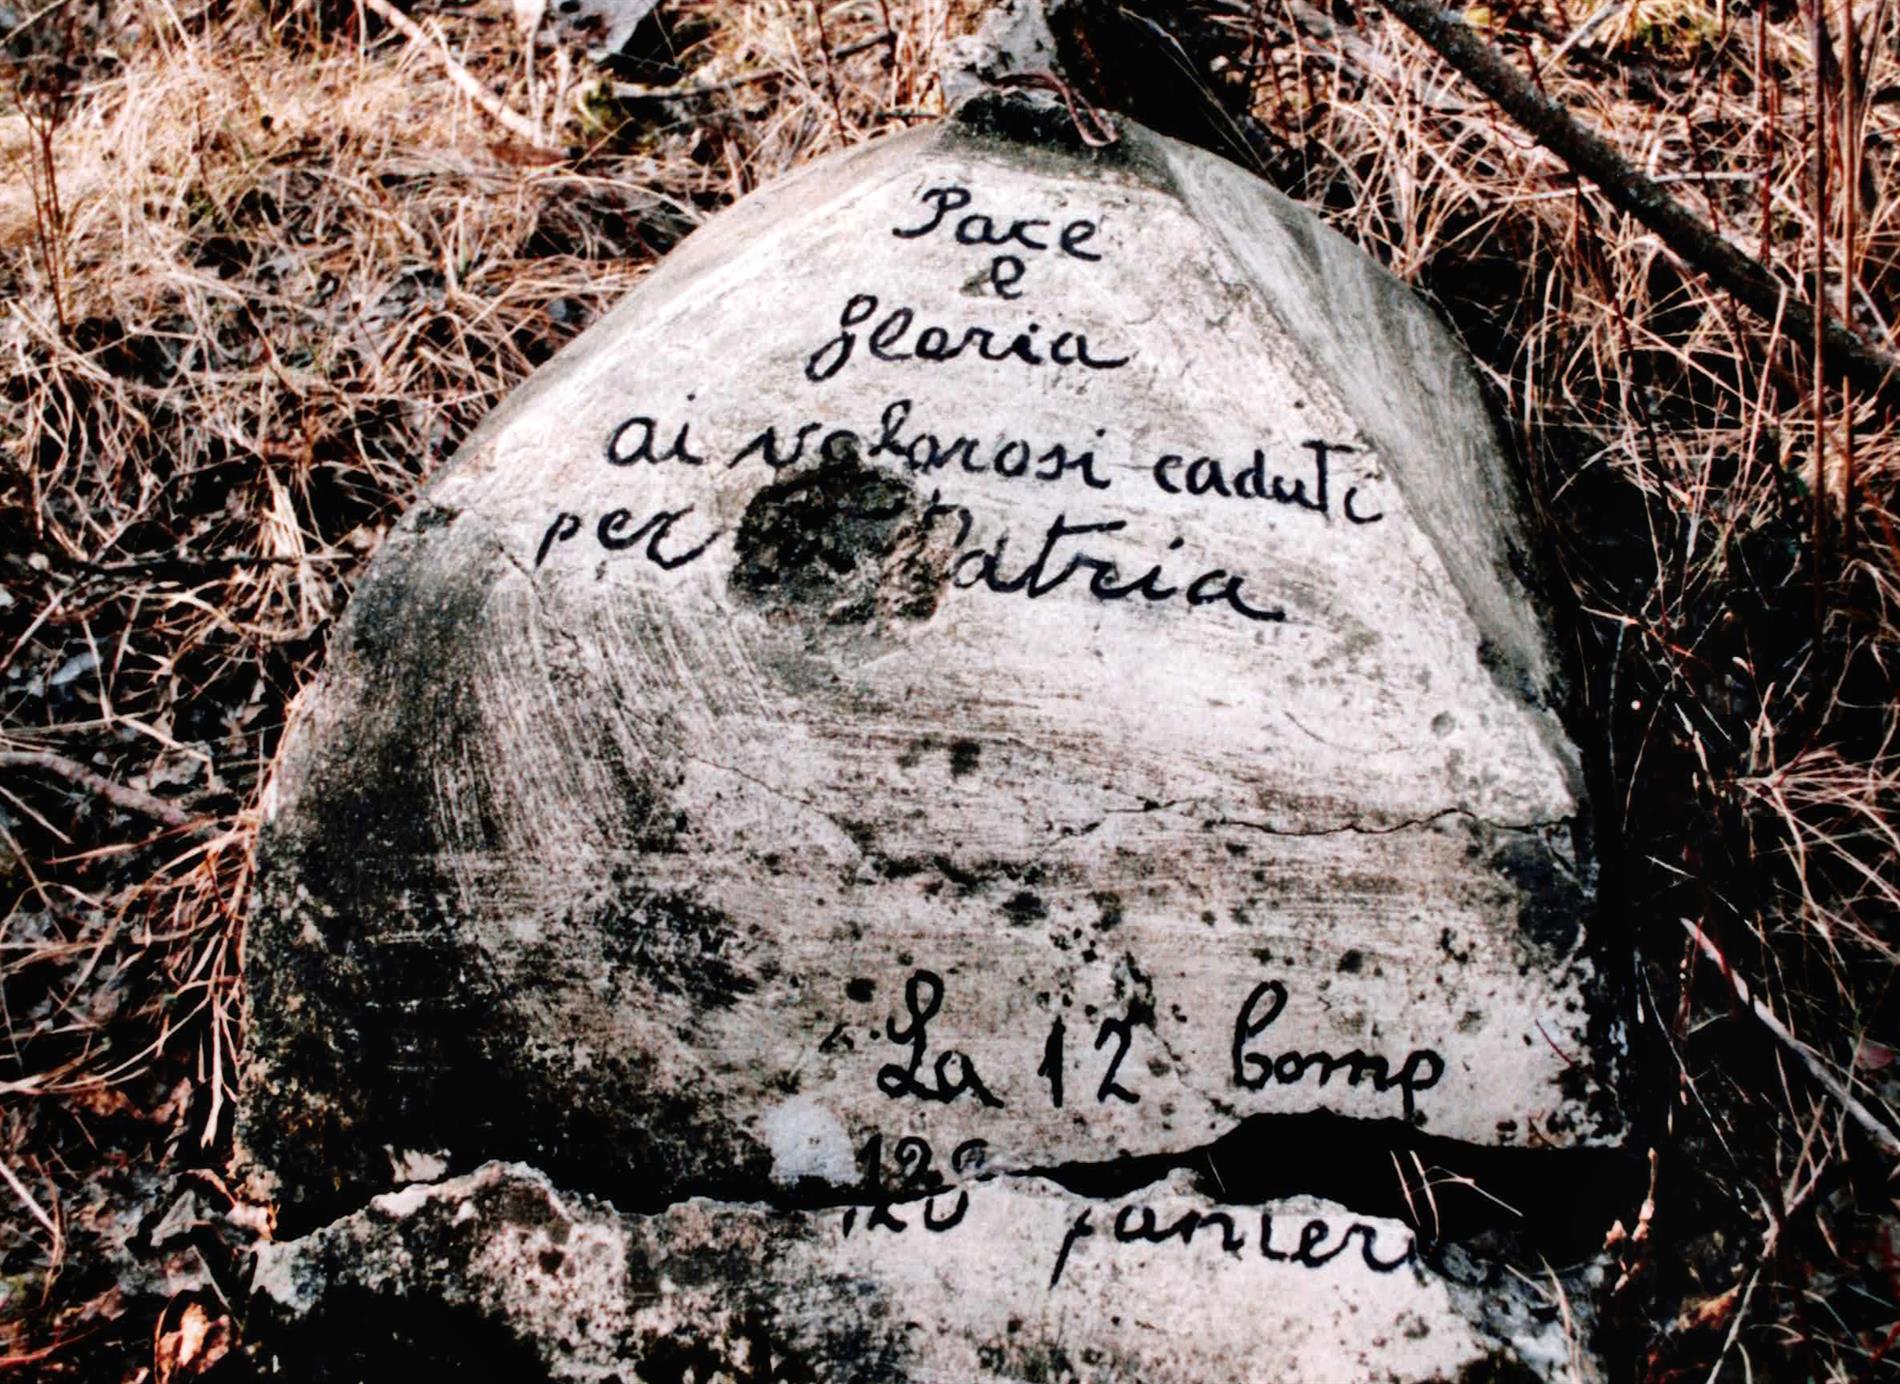 Pace
e
Gloria
ai valorosi caduti
per Patria
La 12 Comp
120 fanteria